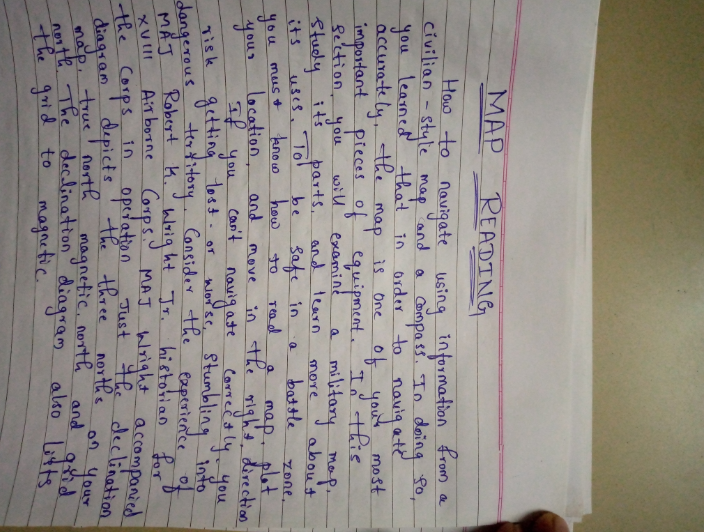 MAP READING
How to navigate using information from a
civilian - style map and a compass. In doing so,
you learned that in order to navigate
accurately, the map is one of your most
important pieces of equipment. In this
section, you will examine a military map,
study its parts, and learn more about
its uses. To be safe in a battle zone,
you must know how to read a map, plot
your location, and move in the right direction
If you can't navigate correctly, you
risk getting lost - or worse, stumbling into
dangerous territory. Consider the experience of
MAJ Robert K. Wright Jr. historian for
XVIII Airborne Corps. MAJ Wright accompanied
the Corps in operation Just the declination
diagram depicts the three norths on your
map, true north magnetic north and grid
north. The declination diagram also lists
the grid to magnetic.